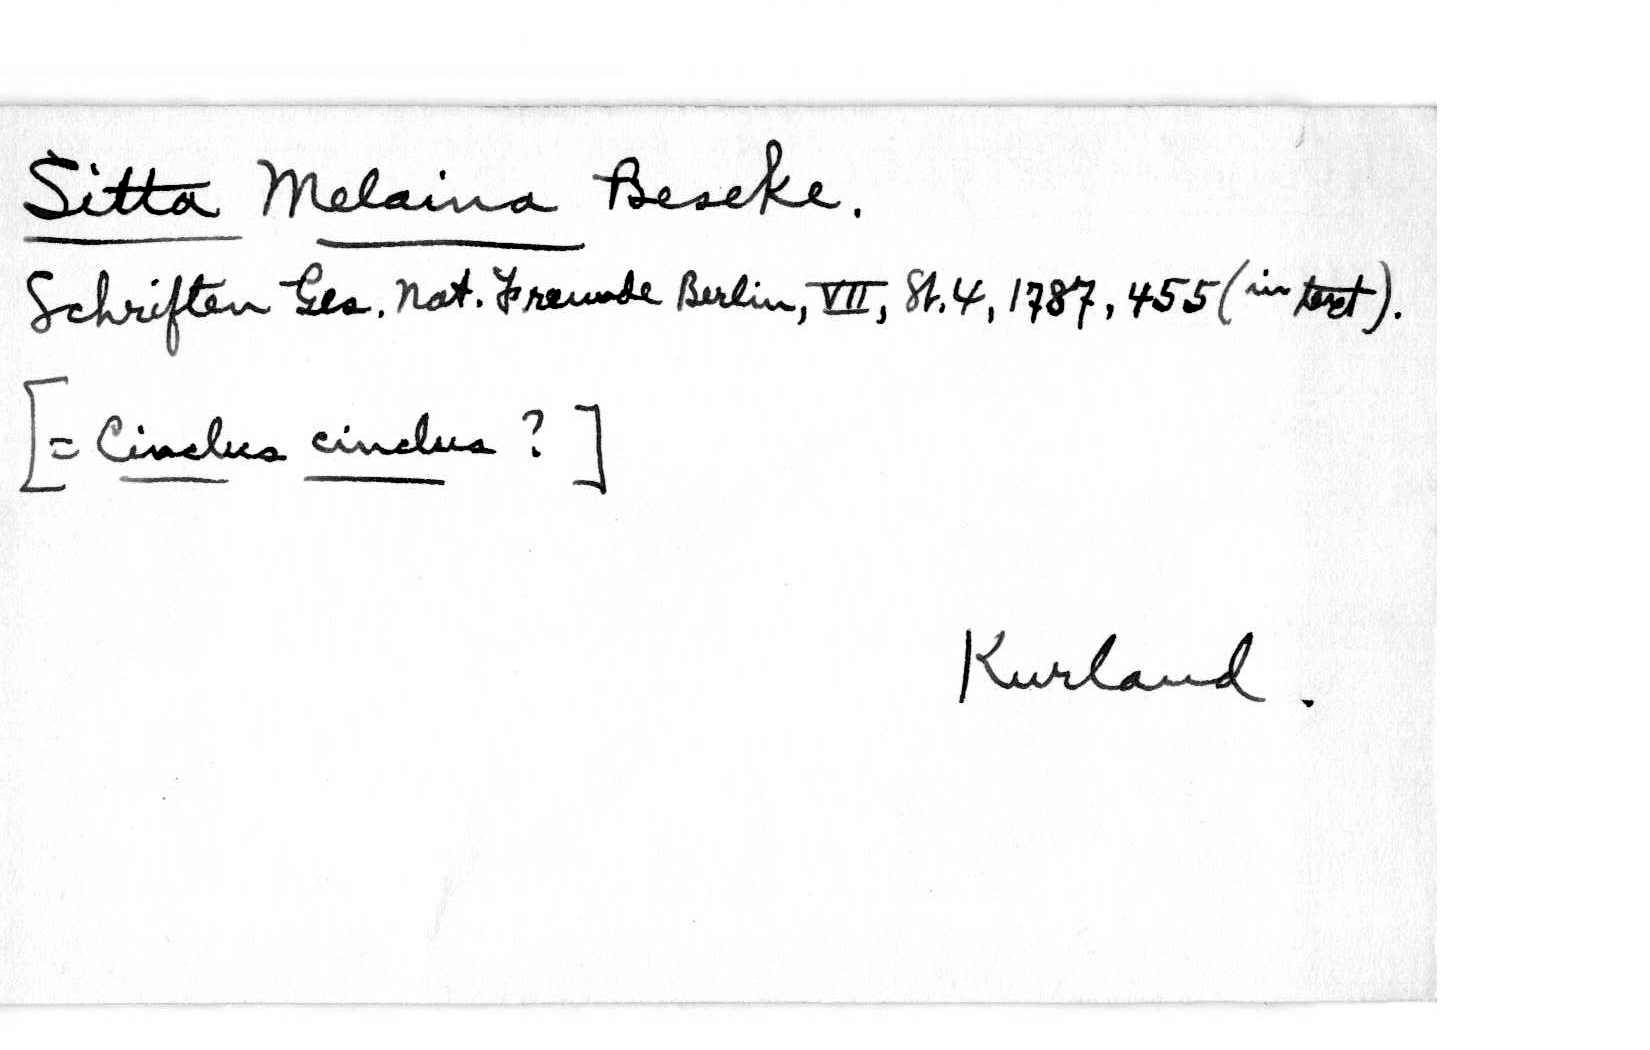 Sitta Melaina Beseke.
Schriften Ges. Nat. Freunde Berlin, VII, St. 4, 1787, 455 (in text).
[= Cinclus cinclus ? ]
Kurland.